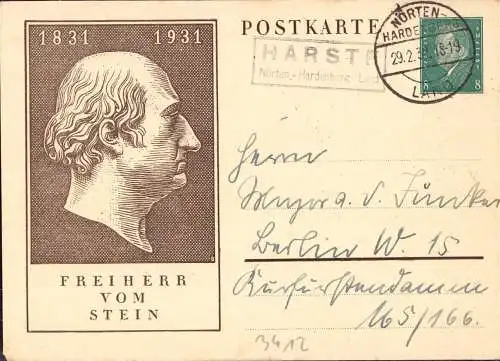 1831 1931
FREIHERR
VOM
STEIN
POSTKARTE
HARSTE
Nörten-Hardenberg Land
NÖRTEN-
HARDENBERG
29.2.3 18-19
LAND
8 8
Herrn
Major a. D. Junker
Berlin W. 15
Kurfürstendamm
165/166.
3412